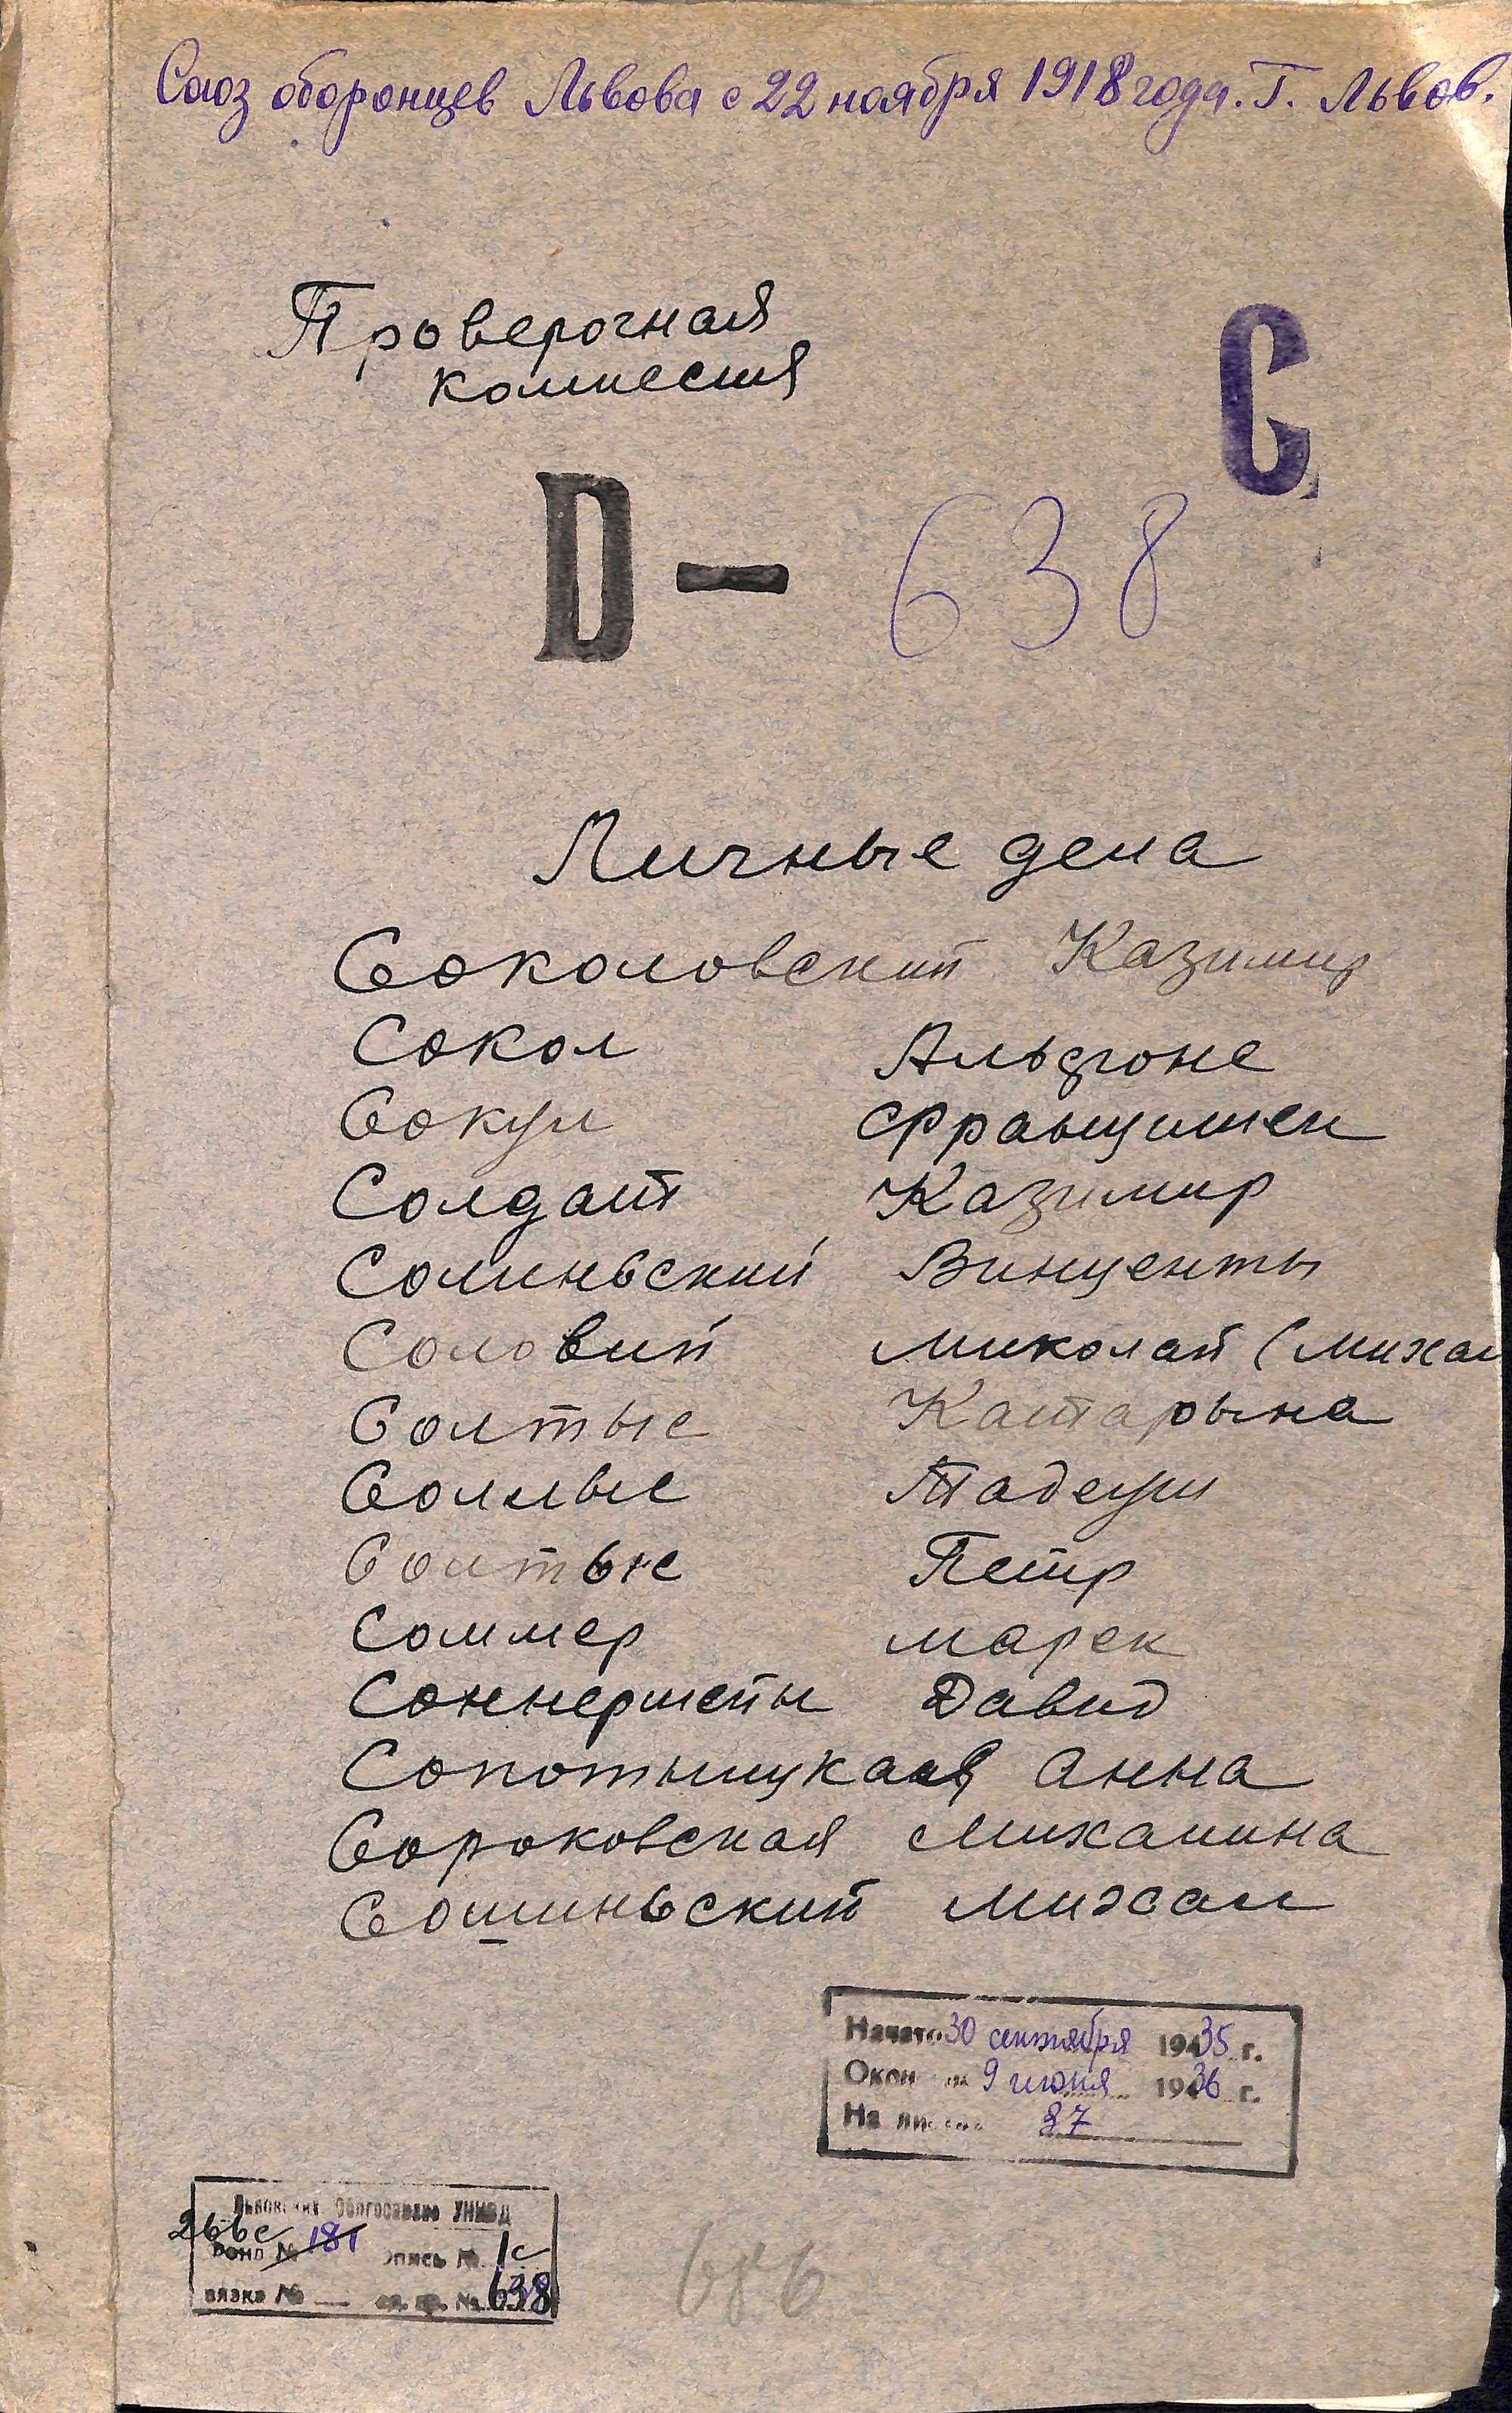 Союз оборонцев Львова с 22 ноября 1918 года. Г. Львов.
Проверочная
комиссия
С
D — 638
Личные дела
Соколовский Казимир
Сокол Альфонс
Сокул Францишек
Солдат Казимир
Солиньский Винценты
Соловий Миколай (Михал
Солтыс Катарына
Солтыс Тадеуш
Солтыс Петр
Соммер Марек
Соннершейн Давид
Сопотьницкая Анна
Сороковская Михалина
Сошиньский Михал
Начато 30 сентября 1935 г.
Окон 9 июня 1936 г.
На 87
Облгосархив УНКВД
266с Фонд № 181 опись № 1с
вязка № — ед. хр. № 638
686